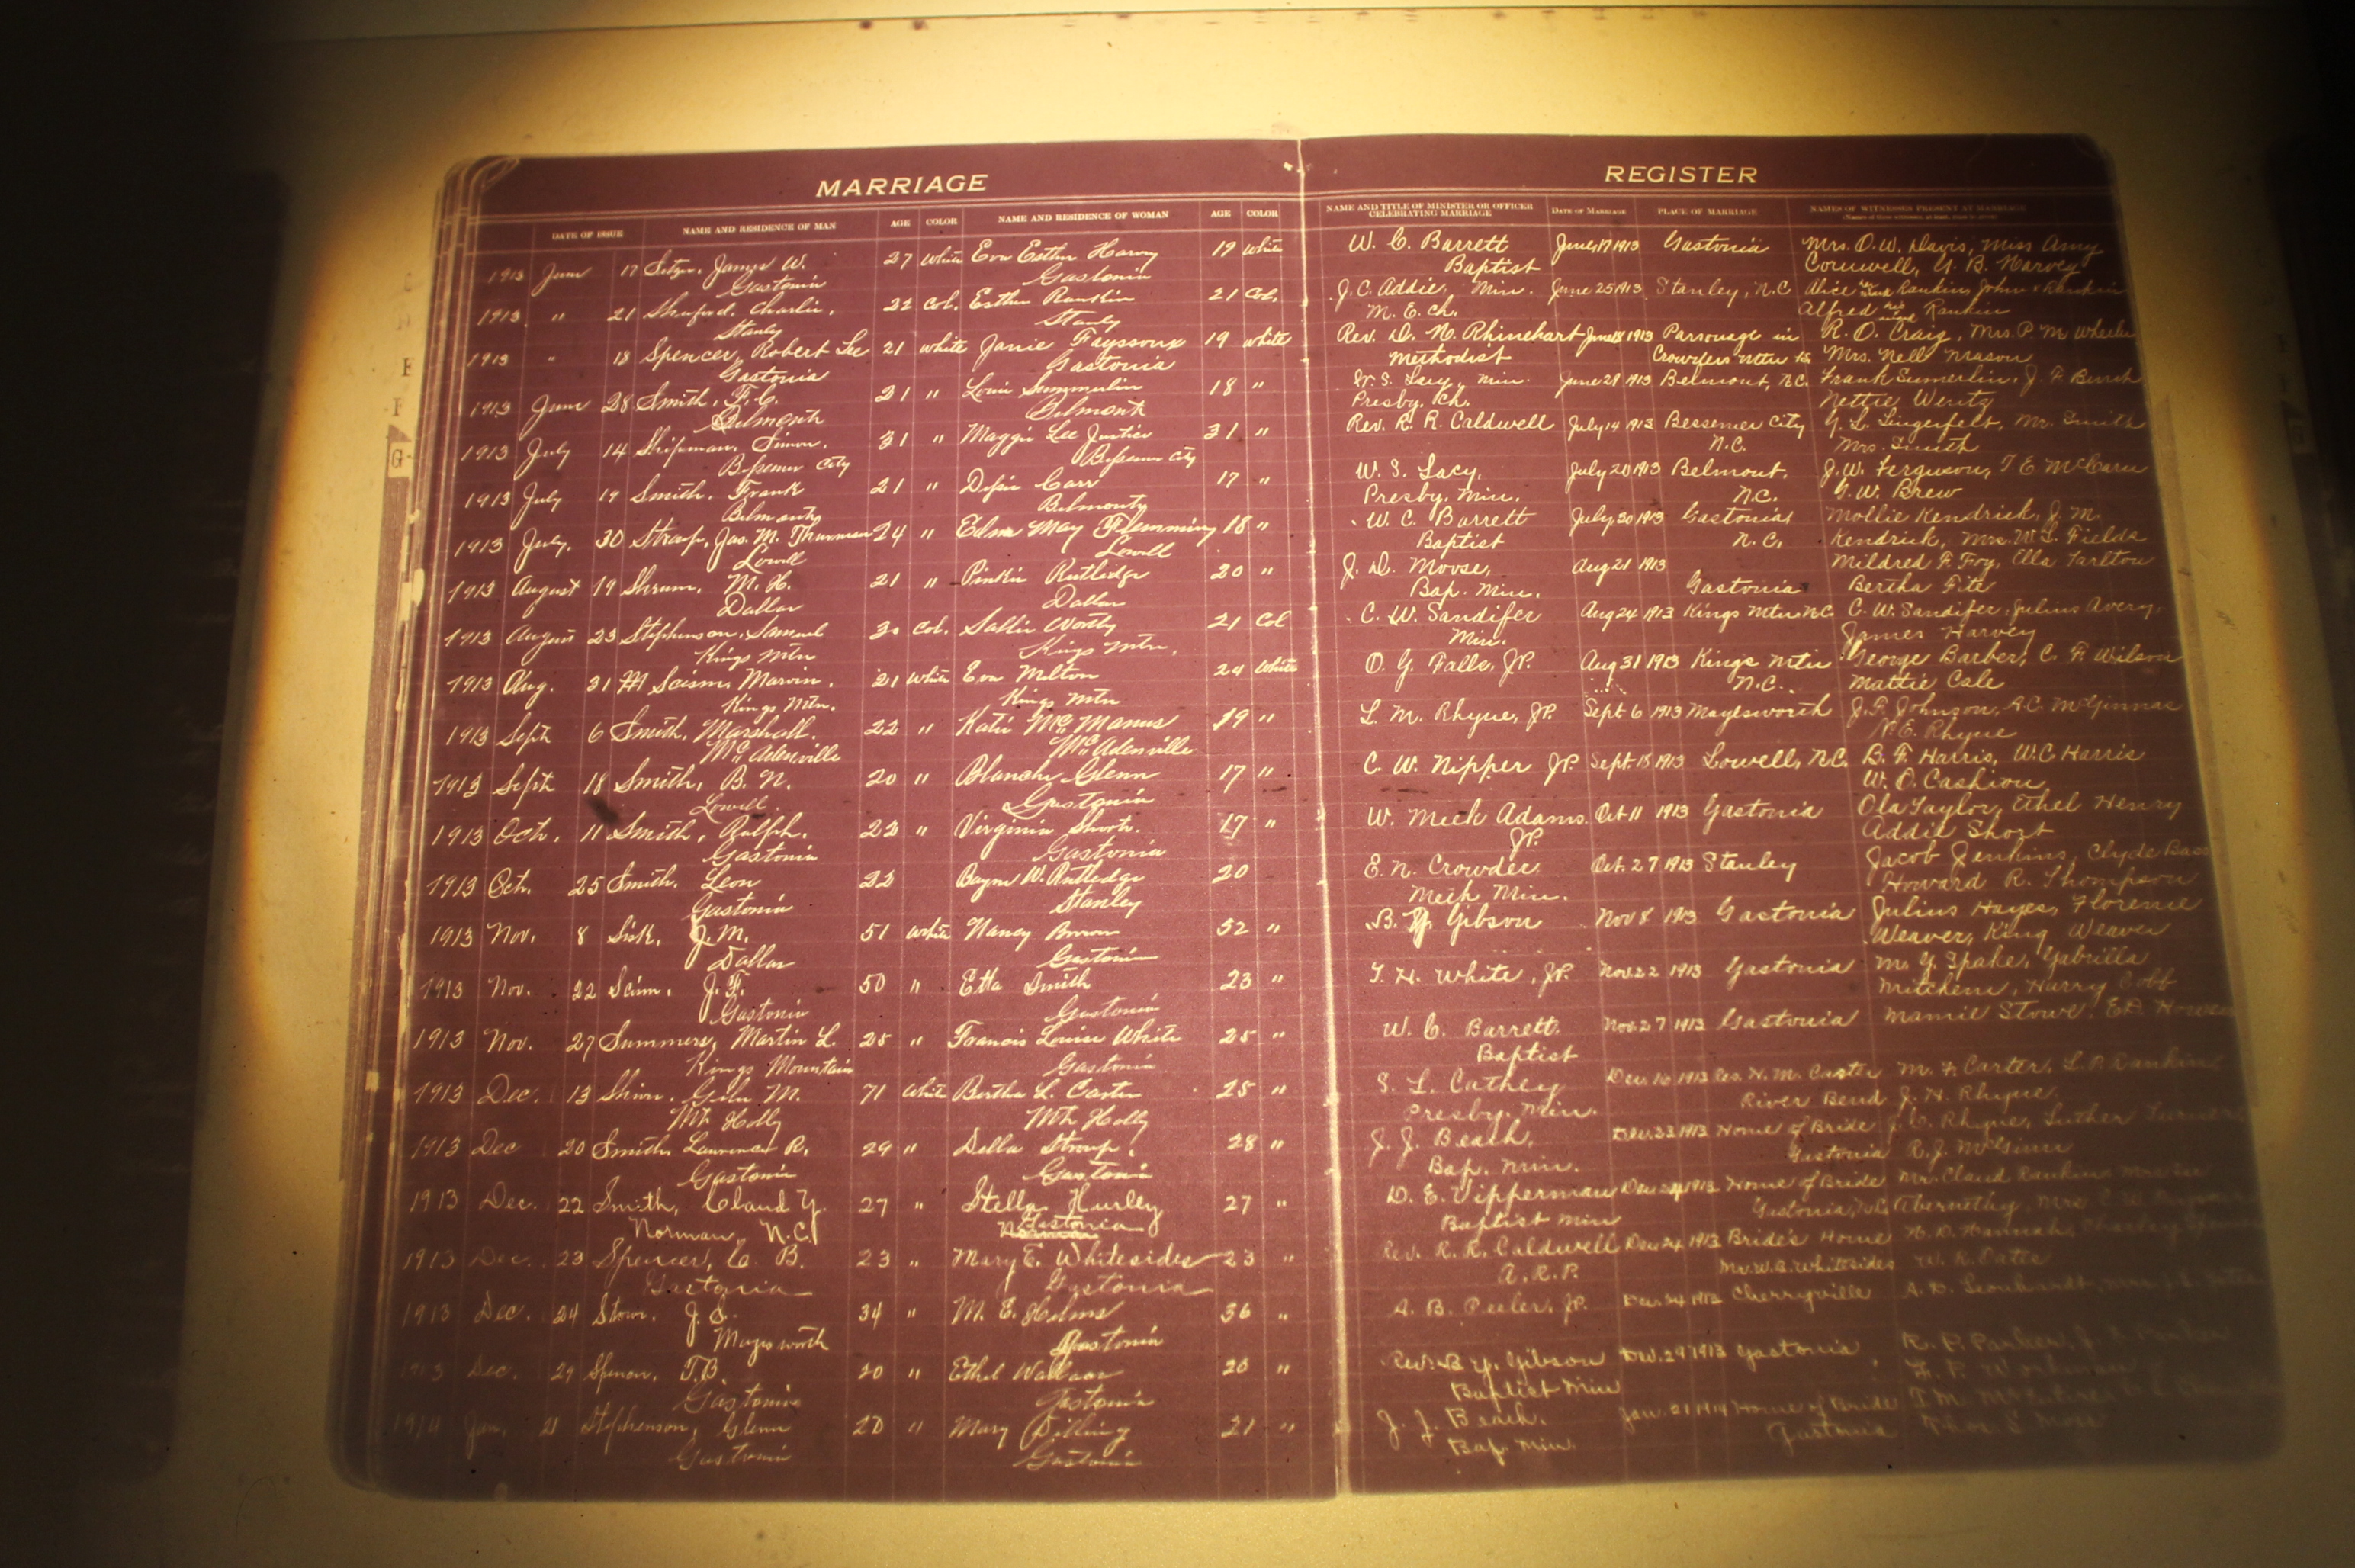 MARRIAGE REGISTER
DATE OF ISSUE NAME AND RESIDENCE OF MAN AGE COLOR NAME AND RESIDENCE OF WOMAN AGE COLOR NAME AND TITLE OF MINISTER OR OFFICER CELEBRATING MARRIAGE DATE OF MARRIAGE PLACE OF MARRIAGE NAMES OF WITNESSES PRESENT AT MARRIAGE
1913 June 17 Setzer, James W. 27 White Eva Esther Harvey 19 White W. C. Barrett June 17 1913 Gastonia Mrs. O. W. Davis, Miss Amy
Gastonia Gastonia Baptist Cornwell, Harvey
1913 " 21 Shuford, Charlie. 22 Col. Esther Rankin 21 Col. J. C. Addie, Min. June 25 1913 Stanley, N.C. Alice Rankin, John Rankin
Stanly Stanly M. E. Ch. Alfred Rankin
1913 " 18 Spencer, Robert Lee 21 White Janie Fayssoux 19 White Rev. D. N. Rhinehart June 18 1913 Parsonage in R. O. Craig, Mrs. P. M. Wheeler
Gastonia Gastonia Methodist Crowders Mtn Mrs. Nell Mason
1913 June 28 Smith, F. C. 21 " Louie Summerlin 18 " W. S. Lacy, Min. June 1913 Belmont, N.C. Frank Sumerlin, J. F.
Belmont Belmont Presby. Ch. Nettie Wentz
1913 July 14 Shipman, Simon. 31 " Maggie Lee Justice 31 " Rev. R. R. Caldwell July 14 1913 Bessemer City Lingerfelt, Mr. Smith
Bessemer City Bessemer City N.C. Mrs. Smith
1913 July 19 Smith, Frank 21 " Carr 17 " W. S. Lacy, July 20 1913 Belmont, J. W. Ferguson, T. E. McCarn
Belmont Belmont Presby. Min. N.C. Brew
1913 July. 30 Stroup, Jas. M. Thurman 24 " Edna May Flemming 18 " W. C. Barrett July 30 1913 Gastonia Mollie Kendrick, J. M.
Lowell Lowell Baptist N.C. Kendrick, Mrs. W. L. Fields
1913 August 19 Shrum, M. H. 21 " Pinkie Rutledge 20 " J. D. Moose, Aug 21 1913 Mildred F. Foy, Ella Tarlton
Dallas Dallas Bap. Min. Gastonia Bertha Fite
1913 August 23 Stephenson, Samuel 30 Col. Sallie Worthy 21 Col C. W. Sandifer Aug 24 1913 Kings Mtn N.C. C. W. Sandifer, Julius Avery,
Kings Mtn Kings Mtn. Min. James Harvey
1913 Aug. 31 Scism, Marvin. 21 White Eva Melton 24 White O. G. Falls, JP. Aug 31 1913 Kings Mtn George Barber, C. F. Wilson
Kings Mtn. Kings Mtn N.C. Mattie Cale
1913 Sept 6 Smith, Marshall. 22 " Katie McManus 19 " L. M. Rhyne, JP. Sept 6 1913 Mayesworth J. F. Johnson, McGinnas
McAdenville McAdenville Rhyne
1913 Sept 18 Smith, B. N. 20 " Blanche Glenn 17 " C. W. Nipper JP. Sept. 18 1913 Lowell, N.C. B. F. Harris, W. C Harris
Lowell. Gastonia W. O. Cashion
1913 Oct. 11 Smith, Ralph. 22 " Virginia Short. 17 " W. Meek Adams. Oct 11 1913 Gastonia Ola Taylor, Ethel Henry
Gastonia Gastonia JP. Addie Short
1913 Oct. 25 Smith, Leon 22 W. Rutledge 20 E. N. Crowder Oct. 27 1913 Stanley Jacob Jenkins, Clyde Bass
Gastonia Stanley Meth Min. Howard R. Thompson
1913 Nov. 8 Sisk, J. M. 51 White Nancy Brown 52 " B. Gibson Nov 8 1913 Gastonia Julius Hayes, Florence
Dallas Gastonia Weaver, King Weaver
1913 Nov. 22 Scism, J. F. 50 " Etta Smith 23 " T. H. White, JP. Nov. 22 1913 Gastonia M. G. Spake, Gabrilla
Gastonia Gastonia Mitchem, Harry Cobb
1913 Nov. 27 Summers, Martin L. 25 " Francis Louise White 25 " W. C. Barrett. Nov. 27 1913 Gastonia Mamie Stowe
Kings Mountain Gastonia Baptist
1913 Dec. 13 Shinn, Giles M. 71 White Bertha L. Carter 25 " S. L. Cathey Dec. 16 1913 Res. H. M. Carter M. F. Carter, Rankin
Mt. Holly Mt Holly Presby. Min. River Bend J. H. Rhyne
1913 Dec 20 Smith, Lawrence R. 29 " Della Stroup. 28 " J. J. Beach, Dec. 23 1913 Home of Bride Rhyne, Luther
Gastonia Gastonia Bap. Min. Gastonia R. J. McGinn
1913 Dec. 22 Smith, Claud Y. 27 " Stella Hurley 27 " D. E. Vipperman Dec 24 1913 Home of Bride Mr. Claud Rankin
Norman, N.C. Gastonia Baptist Min Gastonia, N.C. Abernethy, Mrs
1913 Dec. 23 Spencer, C. B. 23 " Mary E. Whitesides 23 " Rev. R. R. Caldwell Dec 24 1913 Bride's Home Hannah, Charley
Gastonia Gastonia A. R. P. Mr. W. B. Whitesides
1913 Dec. 24 Stowe, J. S. 34 " M. E. Helms 36 " A. B. Peeler, JP. Dec. 24 1913 Cherryville A. D. Leonhardt
Mayesworth Gastonia
1913 Dec. 29 Spencer, T. B. 20 " Ethel Wallace 20 " Rev. B Y. Gibson Dec. 29 1913 Gastonia
Gastonia Gastonia Baptist Min
1914 Jan. 21 Stephenson, Glenn 20 " Mary Dilling 21 " J. J. Beach. Jan. 21 1914 Home of Bride
Gastonia Gastonia Bap. Min. Gastonia